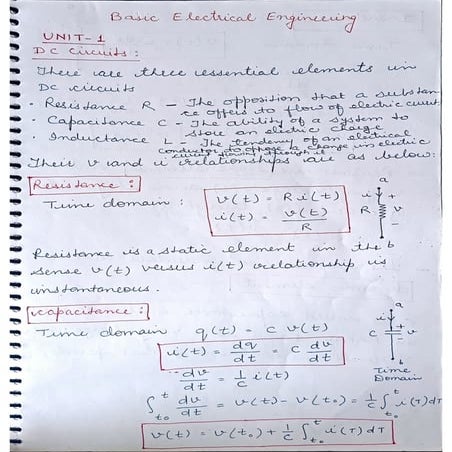 Basic Electrical Engineering
UNIT-1
DC Circuits :
There are three essential elements in
DC circuits
· Resistance R – The opposition that a substan
ce offers to flow of electric current
· Capacitance C – The ability of a system to
store an electric charge
· Inductance L – The tendency of an electrical
conductor to oppose a change in electric
current flowing through it
Their v and i relationships are as below:
Resistance :
Time domain :
v(t) = R i(t)
i(t) = v(t)/R
a
i
R
+
v
-
b
Resistance is a static element in the
sense v(t) versus i(t) relationship is
instantaneous.
Capacitance :
Time domain q(t) = C v(t)
i(t) = dq/dt = C dv/dt
dv/dt = 1/C i(t)
∫ₜ₀ᵗ dv/dt = v(t) - v(t₀) = 1/C ∫ₜ₀ᵗ i(τ)dτ
v(t) = v(t₀) + 1/C ∫ₜ₀ᵗ i(τ)dτ
a
i
C
+
v
-
b
Time
Domain